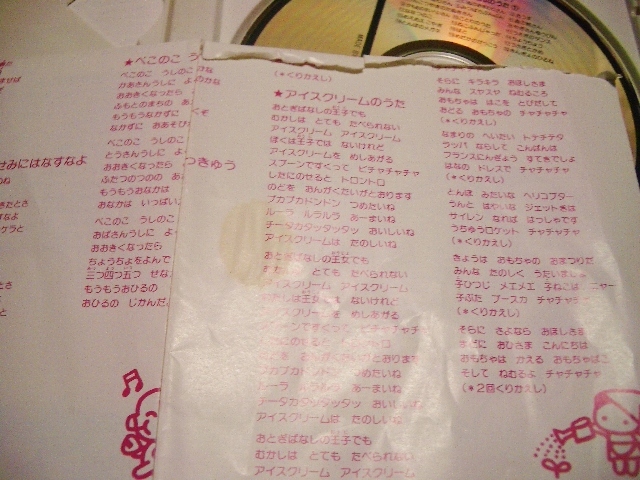 ませば
せみにはなすなよ
★べこのこ
べこのこ うしのこ
かあさんうしに よ
おおきくなったら
ふもとのまちの
もうもうなかずに
なかずに おおそび
べこのこ うしのこ
とうさんうしに よ
おおきくなったら
ふたつのつのの
もうもうおなかは
おなかは いっぱい
べこのこ うしのこ
おばさんうしに よ
おおきくなったら
ちょうちょをよんで
三つ四つ五つ せな
もうもうおひるの
おひるの じかんだ
つきゅう
(＊くりかえし)
★アイスクリームのうた
おとぎばなしの王子でも
むかしは とても たべられない
アイスクリーム アイスクリーム
ぼくは王子では ないけれど
アイスクリームを めしあがる
スプーンですくって ピチャチャチャ
したにのせると トロントロ
のどを おんがくたいがとおります
プカプカドンドン つめたいね
ルーラ ルラルラ あーまいね
チータカタッタッタッ おいしいね
アイスクリームは たのしいね
おとぎばなしの王女でも
むかしは とても たべられない
アイスクリーム アイスクリーム
わたしは王女では ないけれど
アイスクリームを めしあがる
スプーンですくって ピチャチャチャ
したにのせると トロントロ
のどを おんがくたいがとおります
プカプカドンドン つめたいね
ルーラ ルラルラ あーまいね
チータカタッタッタッ おいしいね
アイスクリームは たのしいね
おとぎばなしの王子でも
むかしは とても たべられない
アイスクリーム アイスクリーム
そらに キラキラ おほしさま
みんな スヤスヤ ねむるころ
おもちゃは はこを とびだして
おどる おもちゃの チャチャチャ
(＊くりかえし)
なまりの へいたい トテチテタ
ラッパ ならして こんばんは
フランスにんぎょう すてきでしょ
はなの ドレスで チャチャチャ
(＊くりかえし)
とんぼ みたいな ヘリコプター
うんと はやいな ジェットきは
サイレン なれば はっしゃです
うちゅうロケット チャチャチャ
(＊くりかえし)
きょうは おもちゃの おまつりだ
みんな たのしく うたいましょ
子ひつじ メエメエ 子ねこは ニャー
子ぶた ブースカ チャチャチャ
(＊くりかえし)
そらに さよなら おほしさま
まどに おひさま こんにちは
おもちゃは かえる おもちゃばこ
そして ねむるよ チャチャチャ
(＊2回くりかえし)